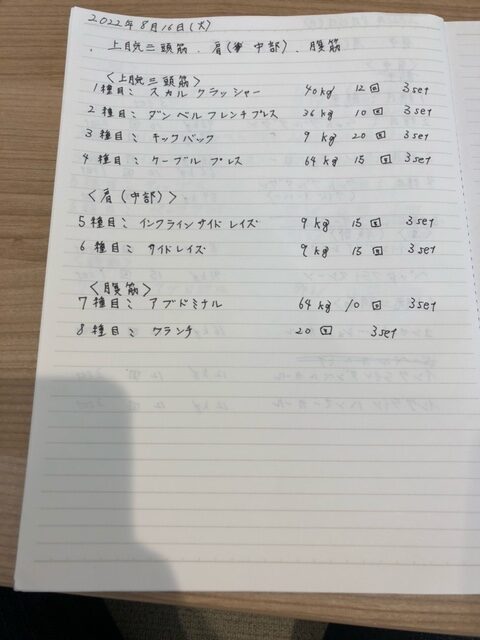 2022年8月16日(火)
・上腕三頭筋、肩(中部)、腹筋
〈上腕三頭筋〉
1種目: スカル クラッシャー 40kg 12回 3set
2種目: ダンベルフレンチプレス 36kg 10回 3set
3種目: キックバック 9kg 20回 3set
4種目: ケーブル プレス 64kg 15回 3set
〈肩(中部)〉
5種目: インクラインサイドレイズ 9kg 15回 3set
6種目: サイドレイズ 9kg 15回 3set
〈腹筋〉
7種目: アブドミナル 64kg 10回 3set
8種目: クランチ 20回 3set